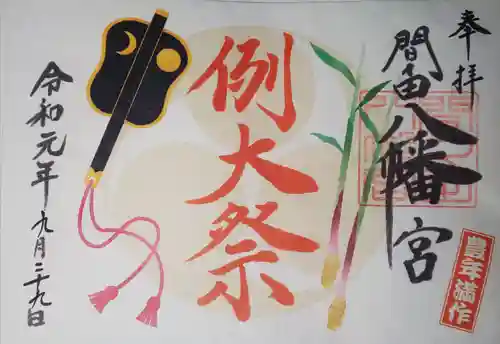 奉拝
間々田八幡宮
例大祭
令和元年
九月二十九日
豊年満作